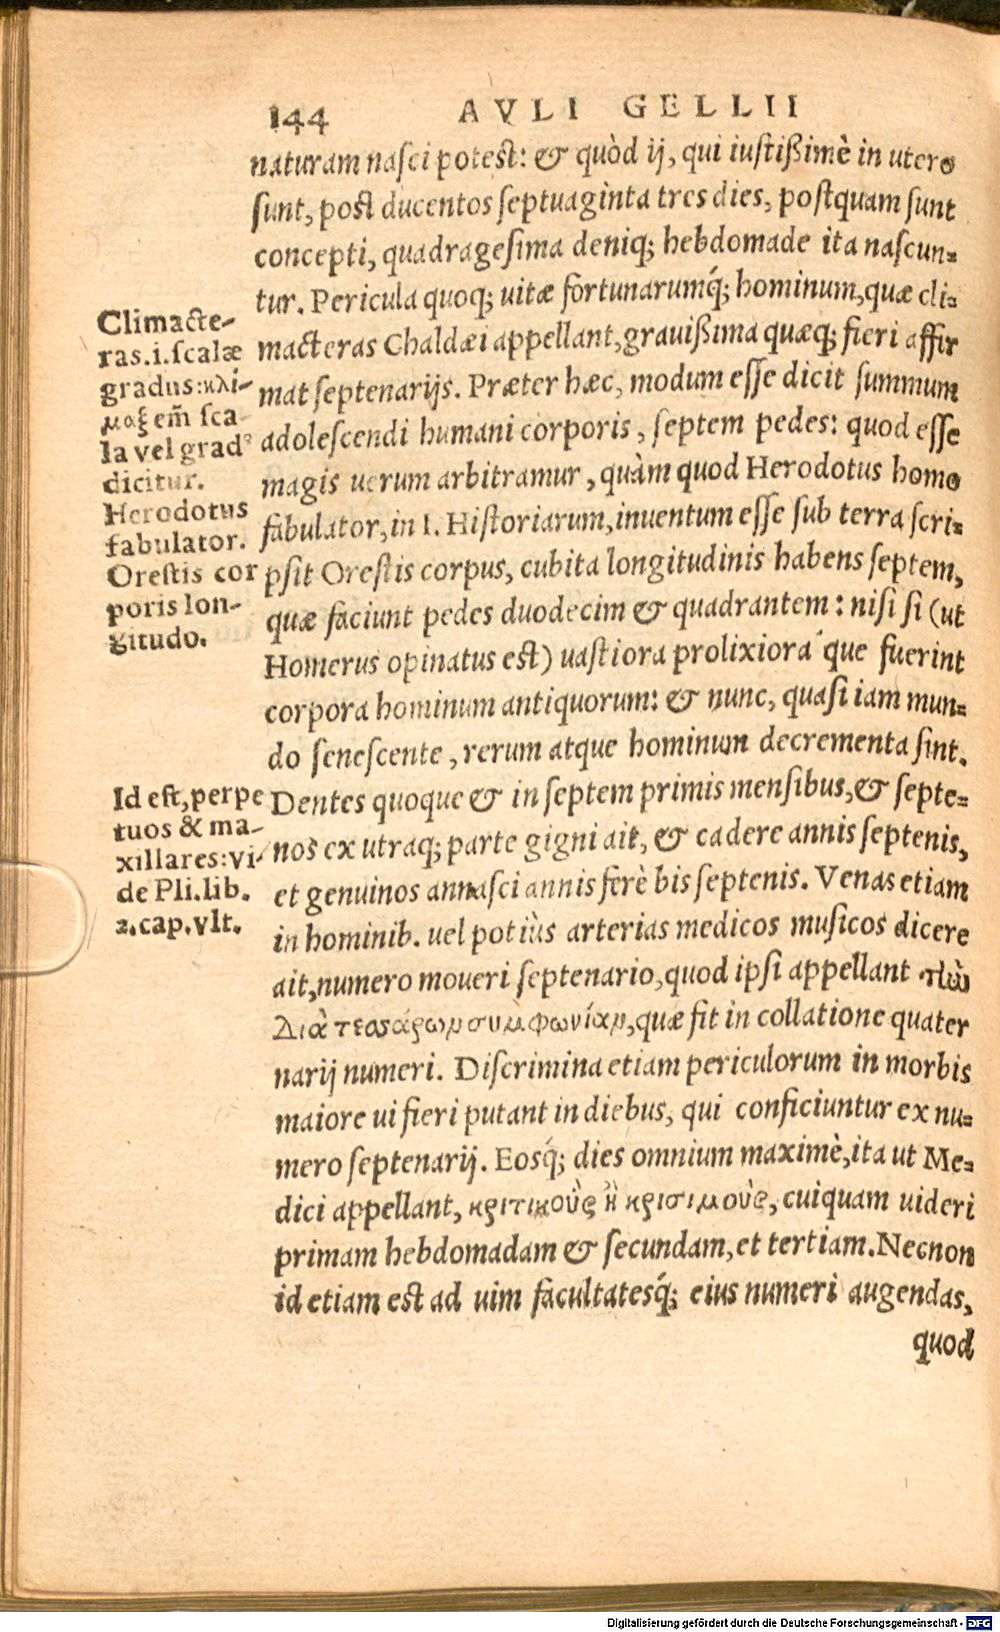 144 AVLI GELLII
naturam nasci potest: & quòd ij, qui iustißimè in utero
sunt, post ducentos septuaginta tres dies, postquam sunt
concepti, quadragesima deniq; hebdomade ita nascun=
tur. Pericula quoq; uitæ fortunarumq́; hominum, quæ cli=
macteras Chaldæi appellant, grauißima quæq; fieri affir
mat septenarijs. Præter hæc, modum esse dicit summum
adolescendi humani corporis, septem pedes: quod esse
magis uerum arbitramur, quàm quod Herodotus homo
fabulator, in I. Historiarum, inuentum esse sub terra scri=
psit Orestis corpus, cubita longitudinis habens septem,
quæ faciunt pedes duodecim & quadrantem: nisi si (ut
Homerus opinatus est) uastiora prolixiora que fuerint
corpora hominum antiquorum: & nunc, quasi iam mun=
do senescente, rerum atque hominum decrementa sint.
Dentes quoque & in septem primis mensibus, & septe=
nos ex utraq; parte gigni ait, & cadere annis septenis,
et genuinos annasci annis ferè bis septenis. Venas etiam
in hominib. uel potiùs arterias medicos musicos dicere
ait, numero moueri septenario, quod ipsi appellant τὴν
Διὰ τεσσάρων συμφωνίαν, quæ fit in collatione quater
narij numeri. Discrimina etiam periculorum in morbis
maiore ui fieri putant in diebus, qui conficiuntur ex nu=
mero septenarij. Eosq́; dies omnium maximè, ita ut Me=
dici appellant, κριτικοὺς ἢ κρισιμοὺς, cuiquam uideri
primam hebdomadam & secundam, et tertiam. Necnon
id etiam est ad uim facultatesq́; eius numeri augendas,
quod
Climacte-
ras.i.scalæ
gradus: κλί-
μαξ em̃ sca
la vel gradꝰ
dicitur.
Herodotus
fabulator.
Orestis cor
poris lon-
gitudo.
Id est, perpe
tuos & ma-
xillares: vi-
de Pli. lib.
2. cap. vlt.
Digitalisierung gefördert durch die Deutsche Forschungsgemeinschaft - DFG